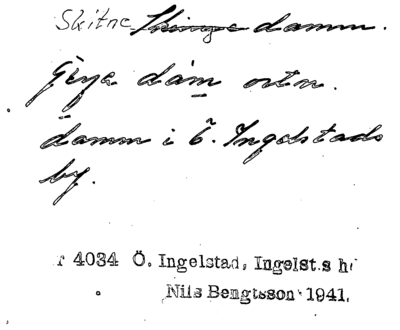 Skitne damm.
damm i Ö. Ingelstads
by.
4034 Ö. Ingelstad, Ingelst.s h
Nils Bengtsson 1941.